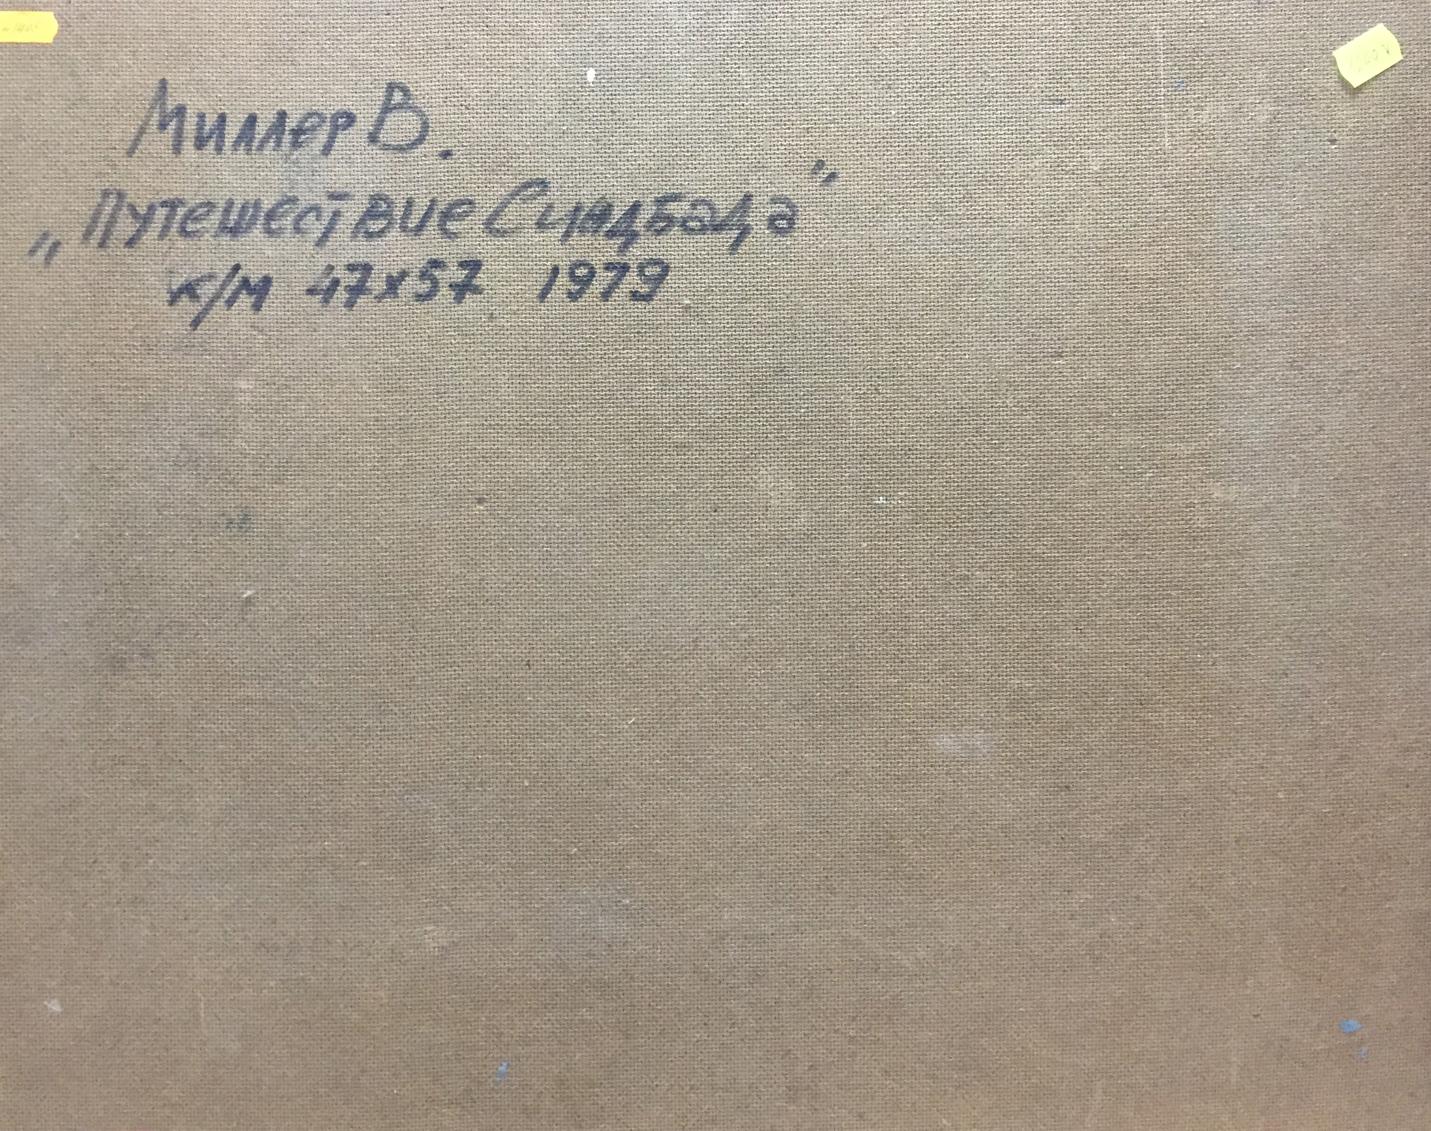 Миллер В.
„Путешествие Синдбада”
к/м 47х57 1979